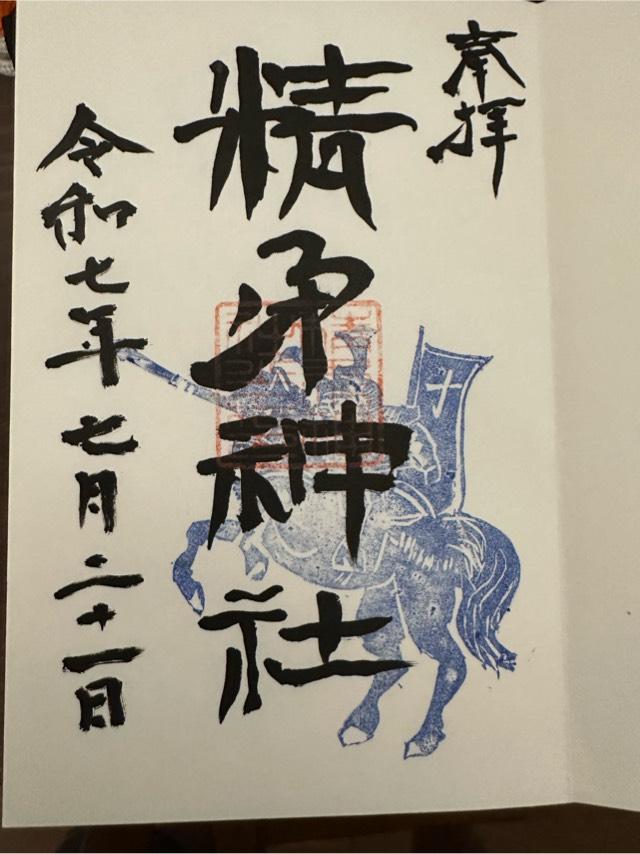 奉拝
精矛神社
令和七年七月二十一日